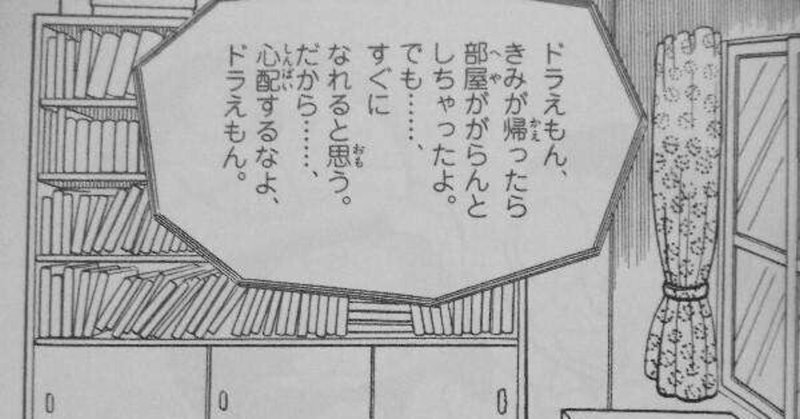 ドラえもん、
きみが帰ったら
部屋ががらんと
しちゃったよ。
でも……、
すぐに
なれると思う。
だから……、
心配するなよ、
ドラえもん。